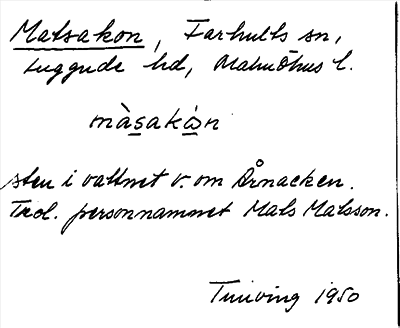 Matsakon, Farhults sn,
Luggude hd, Malmöhus l.
màsakón
sten i vattnet v. om Årnacken.
Trol. personnamnet Mats Matsson.
1950